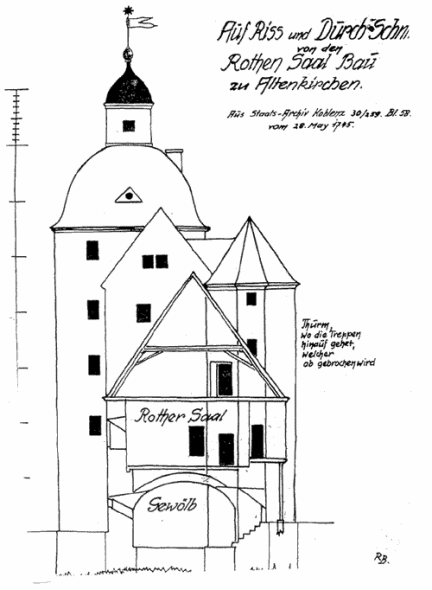 Auf Riss und Durch-Schn.
von den
Rothen Saal Bau
zu Altenkirchen.
Aus Staats-Archiv Koblenz 30/259. Bl. 58.
vom 28. May 1745.
Thurm,
wo die Treppen
hinauf gehet,
welcher
ab gebrochen wird
Rother Saal
Gewölb
RB.